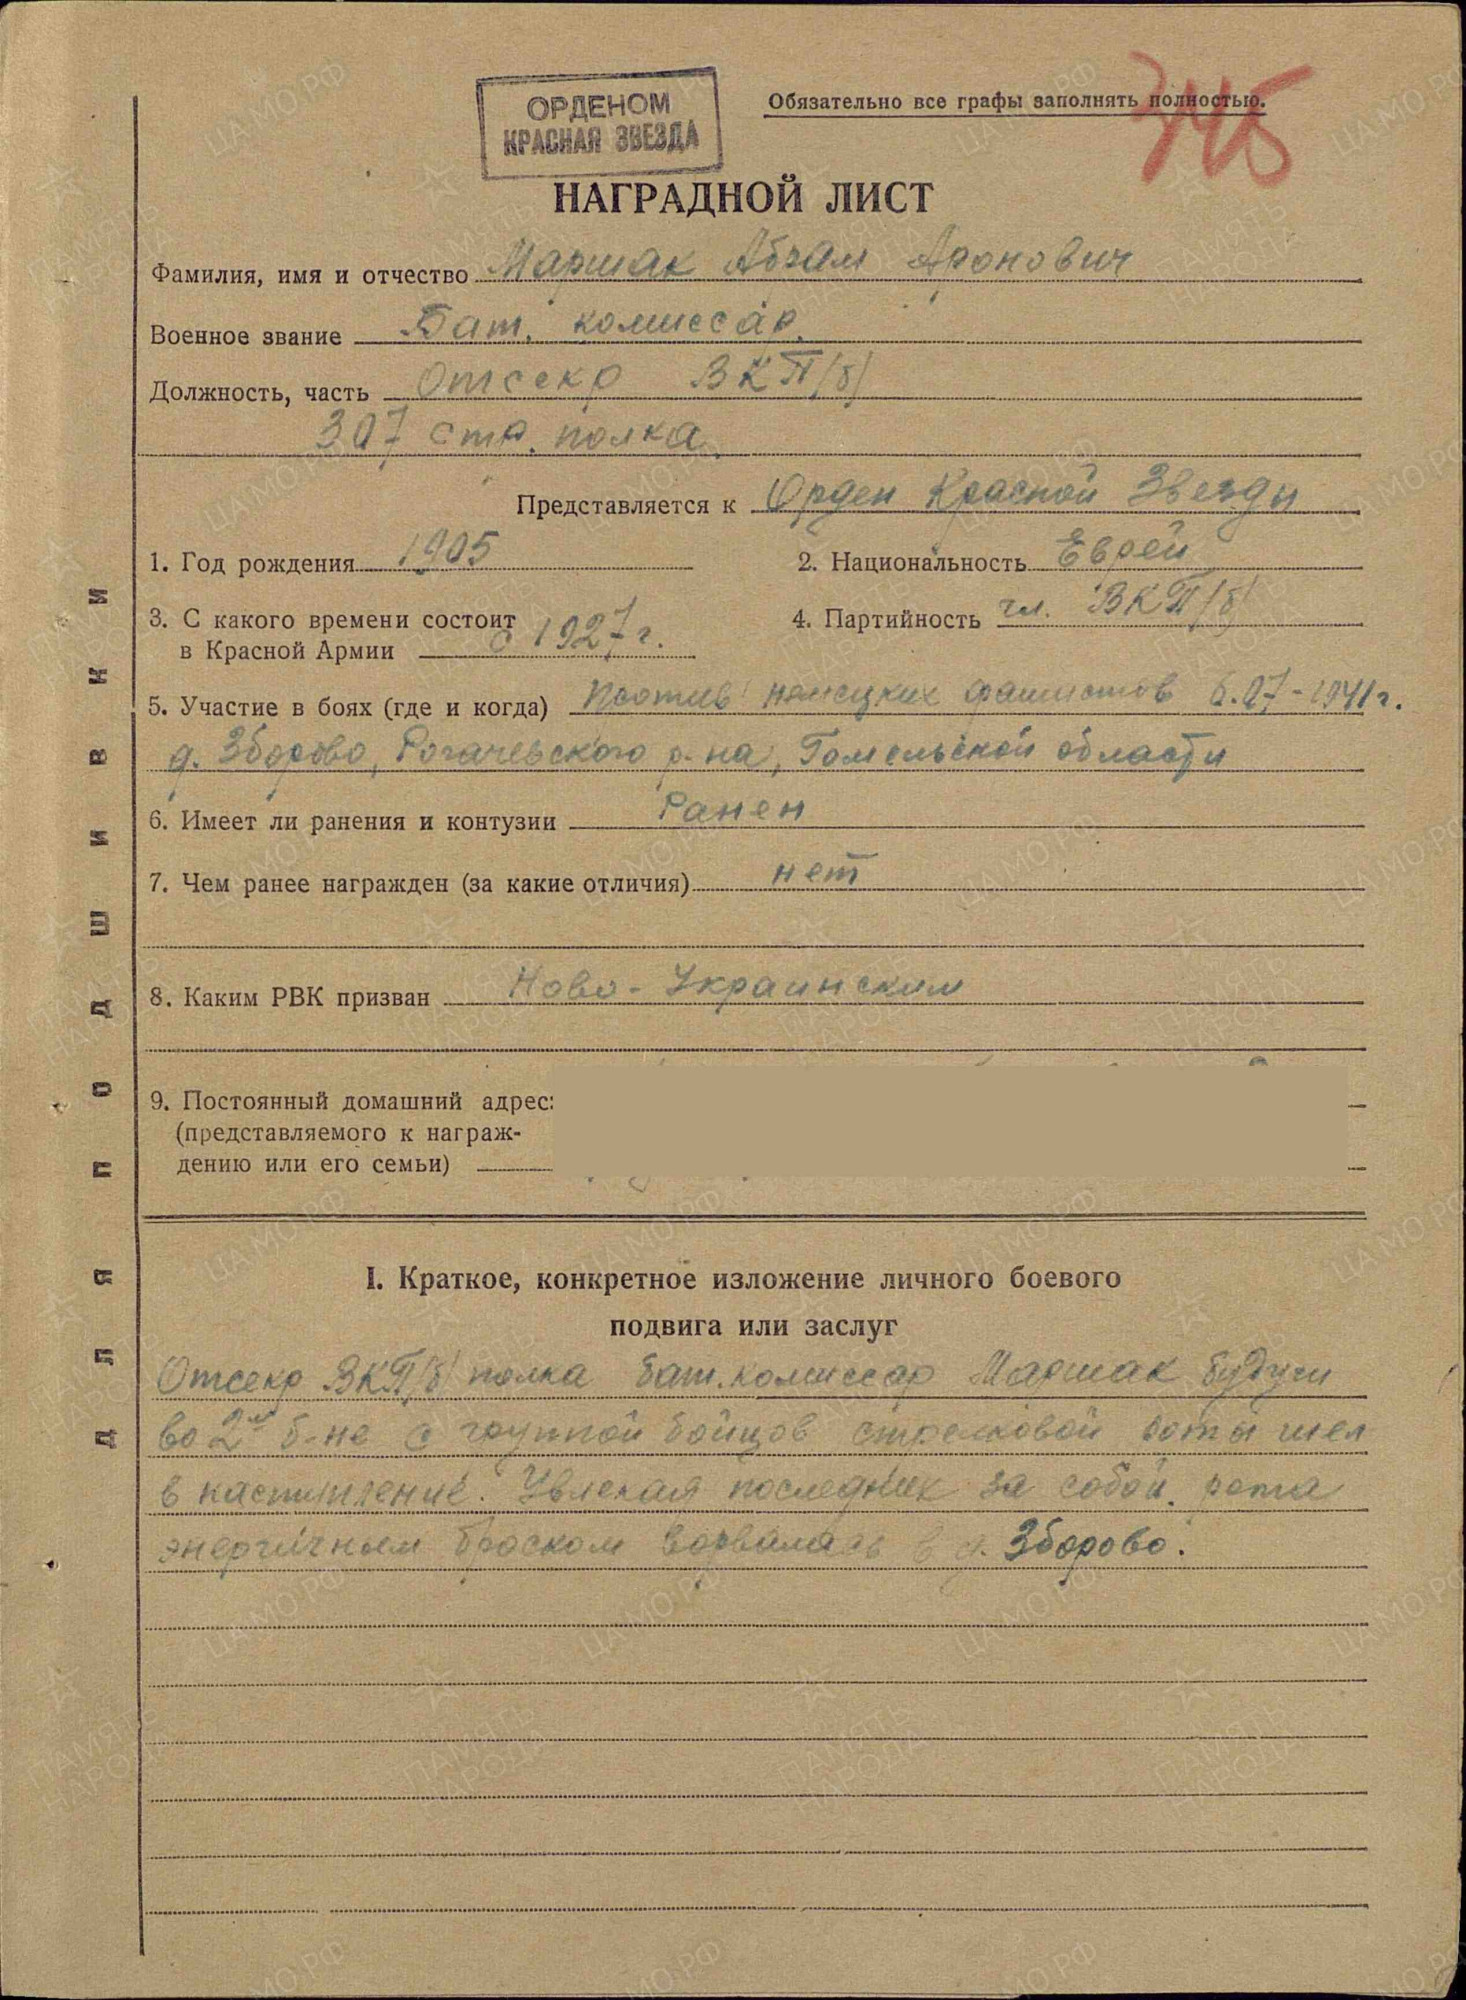 ОРДЕНОМ
КРАСНАЯ ЗВЕЗДА
Обязательно все графы заполнять полностью.
345
НАГРАДНОЙ ЛИСТ
Фамилия, имя и отчество Маршак Абрам Аронович
Военное звание Бат. комиссар.
Должность, часть Отсекр ВКП/б/
307 стр. полка.
Представляется к Орден Красной Звезды
1. Год рождения 1905
2. Национальность Еврей
3. С какого времени состоит
в Красной Армии с 1927 г.
4. Партийность чл. ВКП/б/
5. Участие в боях (где и когда) Против немецких фашистов 6.07-1941 г.
д. Зборово, Рогачевского р-на, Гомельской области
6. Имеет ли ранения и контузии Ранен
7. Чем ранее награжден (за какие отличия) нет
8. Каким РВК призван Ново-Украинским
9. Постоянный домашний адрес:
(представляемого к награж-
дению или его семьи)
I. Краткое, конкретное изложение личного боевого
подвига или заслуг
Отсекр ВКП/б/ полка бат. комиссар Маршак будучи
во 2м б-не с группой бойцов стрелковой роты шел
в наступление. Увлекая последних за собой, рота
энергичным броском ворвалась в д. Зборово.
ДЛЯ ПОДШИВКИ
ЦАМО.РФ
ПАМЯТЬ НАРОДА